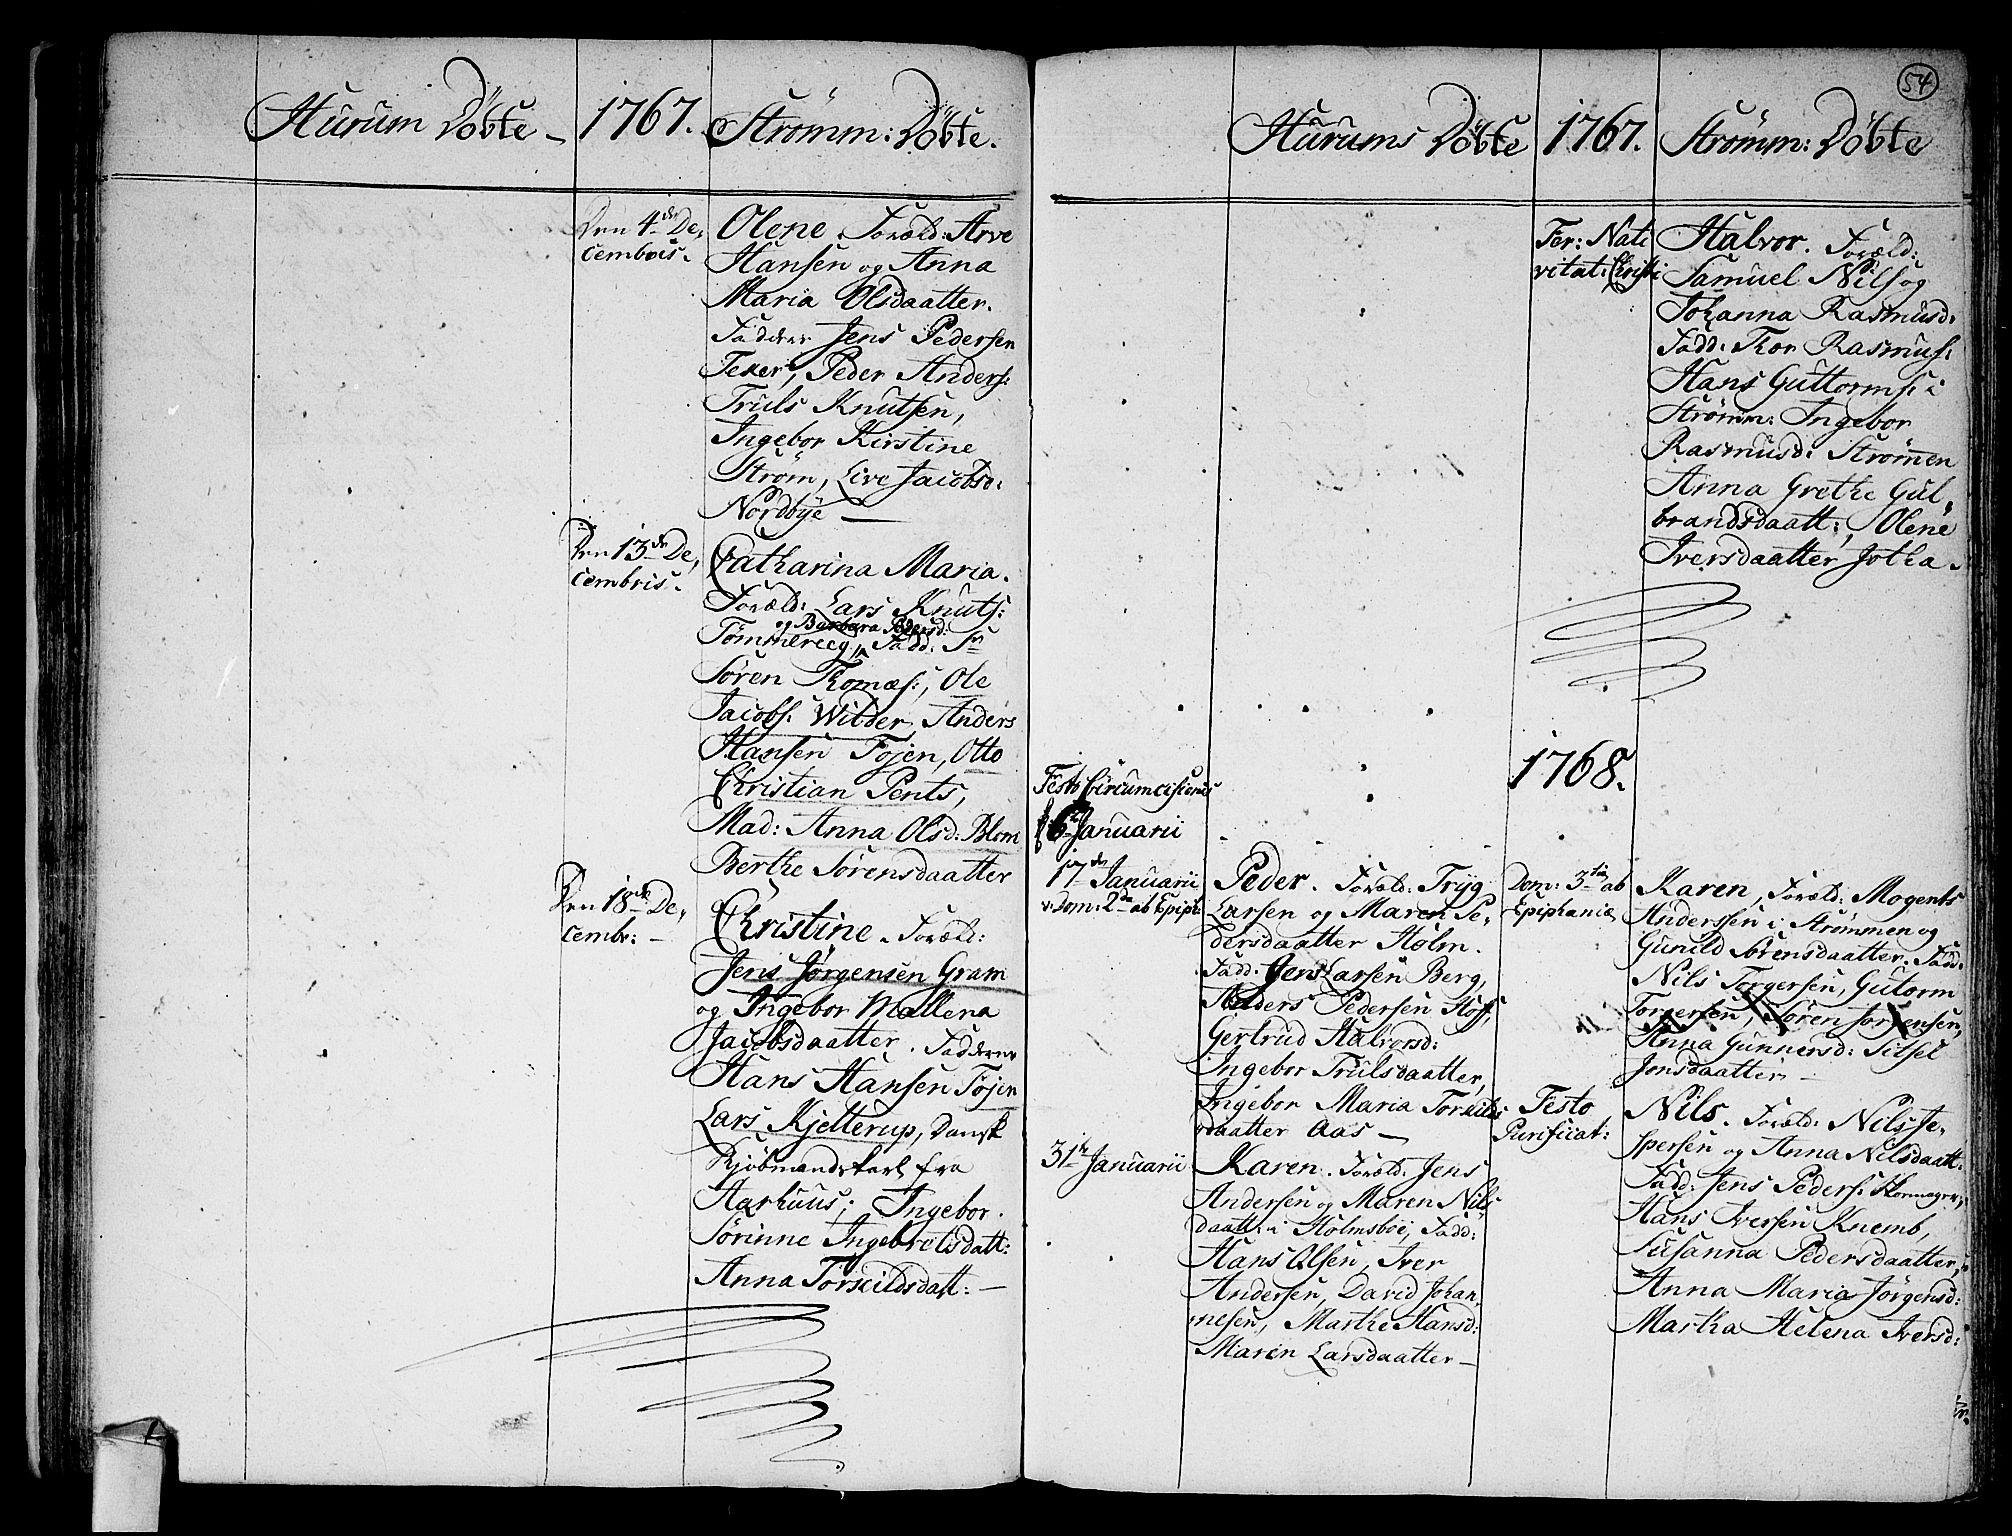 Hurum Döbte - 1767. Strömm: Döbte.
Den 4de De,
cembris.
Olene. Foræld: Arve
Hansen og Anna
Maria Olsdaatter.
Fadderne Jens Pedersen
Teker, Peder Anders:
Truls Knutsen,
Ingebor Kirstine
Strøm, Live Jacobsd:
Nordbye —
Den 13de De,
cembris.
Catharina Maria.
Foræld: Lars Knuts:
og Barbara Pedersd:
Tømmereeg, Fadd: Sr
Søren Thomæs:, Ole
Jacobs: Wilder, Anders
Hansen Föjen, Otto
Christian Pents,
Mad: Anna Olsd: Blom
Berthe Sørensdaatter
Den 18de De,
cembr: —
Christine. Foræld:
Jens Jørgensen Gram
og Ingebor Mallena
Jacobsdaatter. Fadderne
Hans Hansen Föjen
Lars Kjellerup, Dansk
Kjøbmandskarl fra
Aarhuus; Ingebor.
Sørinne Ingebretsdatt:
Anna Torkildsdatt: —
54
Hurums Döbte 1767. Strömm: Döbte
Fer: Nati
vitat: Christi
Halvor. Foræld:
Samuel Nils og
Johanna Rasmusd:
Fadd: Thor Rasmus:
Hans Guttorms: i
Strømm: Ingebor
Rasmusd: Strømen
Anna Grethe Gul,
brandsdaatt:, Olene
Iversdaatter Jotha.
1768.
Festo Circumcisionis
6te Januarii
17de Januarii
v: Dom: 2da ab Epiph:
Peder. Foræld: Tryg
Larsen og Maren Pe,
dersdaatter Holm.
Fadd: Jens Larsen Berg,
Anders Pedersen Hoff,
Gertrud Halvorsd:
Ingebor Trulsdaatter,
Ingebor Maria Torkilds
daatter Aas —
31te Januarii
Karen. Foræld: Jens
Andersen og Maren Nils
daatt: i Holmsboe, Fadd:
Hans Olsen, Iver
Andersen, David Johan,
nesen, Marthe Hansd:
Maren Larsdaatter —
Dom: 3tia ab
Epiphaniæ
Karen, Foræld: Mogents
Anderssen i Strømmen og
Gunild Sørensdaatter. Fadd:
Nils Torgersen, Gutorm
Torgersen, Søren Torgensen,
Anna Gunnersd: Sitsel
Jensdaatter —
Festo
Purificat:
Nils. Foræld: Nils Je,
spersen og Anna Nilsdaatt:
Fadd: Jens Peders: Skomager,
Hans Iversen Knemb,
Susanna Pedersdaatter,
Anna Maria Jørgensd:
Martha Helena Iversd: